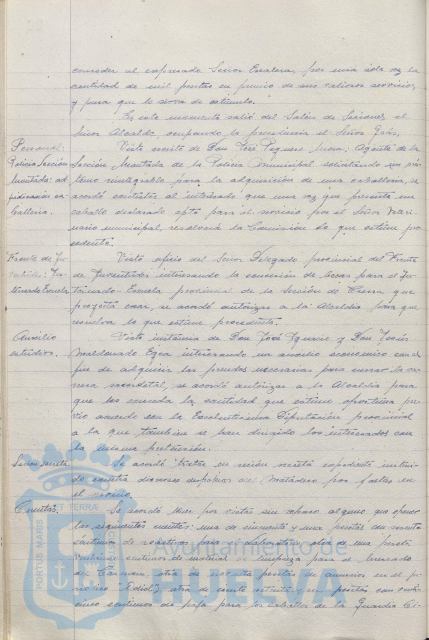 conceder al expresado Señor Escalera, por una sola vez la
cantidad de mil pesetas en premio de sus valiosos servicios,
y para que le sirva de estímulo.
En este momento salió del Salón de Sesiones el
Señor Alcalde, ocupando la presidencia el Señor
Personal
Policia Sección
Montada: ad-
quisicion ca-
balleria.
Visto escrito de Don José Agente de la
Sección Montada de la Policia Municipal solicitando un an-
ticipo reintegrable para la adquisición de una caballeria, se
acordó contestar al interesado que una vez que presente un
caballo declarado apto para el servicio por el Señor Veteri-
nario municipal, resolverá la Comisión lo que estime pro-
cedente.
Frente de Ju-
ventudes:
Escuela
Visto oficio del Señor Delegado provincial del Frente
de Juventudes interesando la concesión de becas para el In-
ternado-Escuela provincial de la Sección de que
proyecta crear, se acordó autorizar a la Alcaldia para que
resuelva lo que estime procedente.
Auxilio
estudios.
Vista instancia de Don José y Don Jesús
Maldonado interesando un auxilio económico con el
fin de adquirir las prendas necesarias para cursar la ca-
rrera sacerdotal, se acordó autorizar a la Alcaldia para
que les conceda la cantidad que estime oportuna pre-
vio acuerdo con la Excelentisima Diputación provincial
a la que tambien se han dirigido los interesados con
la misma pretensión.
Sesión secreta
Se acordó tratar en sesión secreta expediente instrui-
do contra diversos empleados del Matadero por faltas en
el servicio.
Cuentas.
Se acordó por vistas sin reparo alguno que oponer
las siguientes cuentas: una de cincuenta y una pesetas con
céntimos de reactivos para el Laboratorio; otra de
céntimos de material de limpieza para el Mercado
del Carmen; otra de pesetas de anuncios en el pe-
riódico Odiel; otra de ciento y un pesetas con
cinco céntimos de paja para los caballos de la Guardia Ci-
PORTUS MARIS
TERRAE
Ayuntamiento de
HUELVA